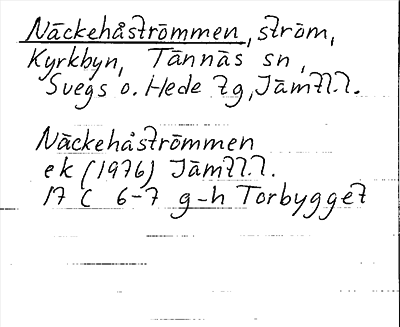 Näckehåströmmen, ström,
Kyrkbyn, Tännäs sn,
Svegs o. Hede tg, Jämtl.l.
Näckehåströmmen
ek (1976) Jämtl.l.
17 C 6-7 g-h Torbygget